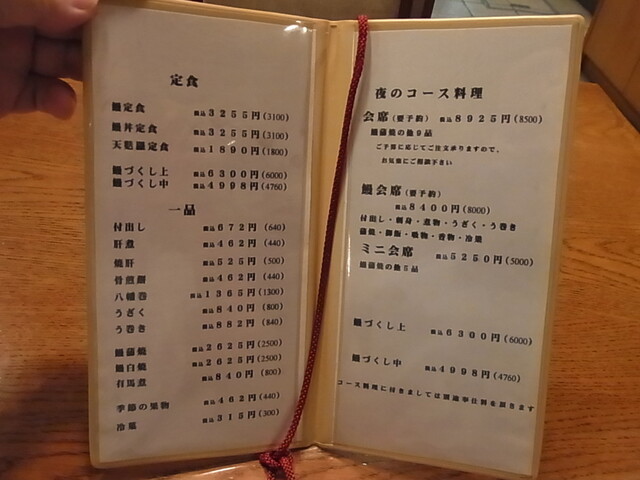 定食
鰻定食 税込3255円(3100)
鰻丼定食 税込3255円(3100)
天麩羅定食 税込1890円(1800)
鰻づくし上 税込6300円(6000)
鰻づくし中 税込4998円(4760)
一品
付出し 税込672円(640)
肝煮 税込462円(440)
焼肝 税込525円(500)
骨煎餅 税込462円(440)
八幡巻 税込1365円(1300)
うざく 税込840円(800)
う巻き 税込882円(840)
鰻蒲焼 税込2625円(2500)
鰻白焼 税込2625円(2500)
有馬煮 税込840円(800)
季節の果物 税込462円(440)
冷菓 税込315円(300)
夜のコース料理
会席(要予約) 税込8925円(8500)
鰻蒲焼の他9品
ご予算に応じてご注文承りますので、
お気軽にご相談下さい
鰻会席(要予約)
税込8400円(8000)
付出し・刺身・煮物・うざく・う巻き
蒲焼・御飯・吸物・香物・冷菓
ミニ会席 税込5250円(5000)
鰻蒲焼の他5品
鰻づくし上 税込6300円(6000)
鰻づくし中 税込4998円(4760)
コース料理に付きましては別途奉仕料を頂きます